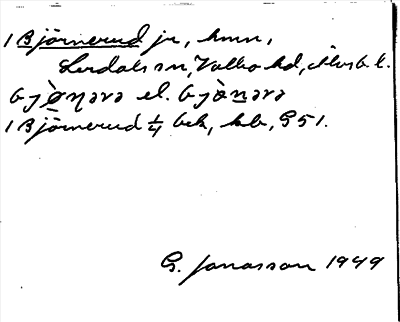 1 Björnerud jr, hmn,
Lerdals sn, Valbo hd, Älvsb. l.
bjö̀ŋərə el. bjö̀nərə
1 Björnerud 1/4 bek, kb, G51.
G. Jonasson 1949